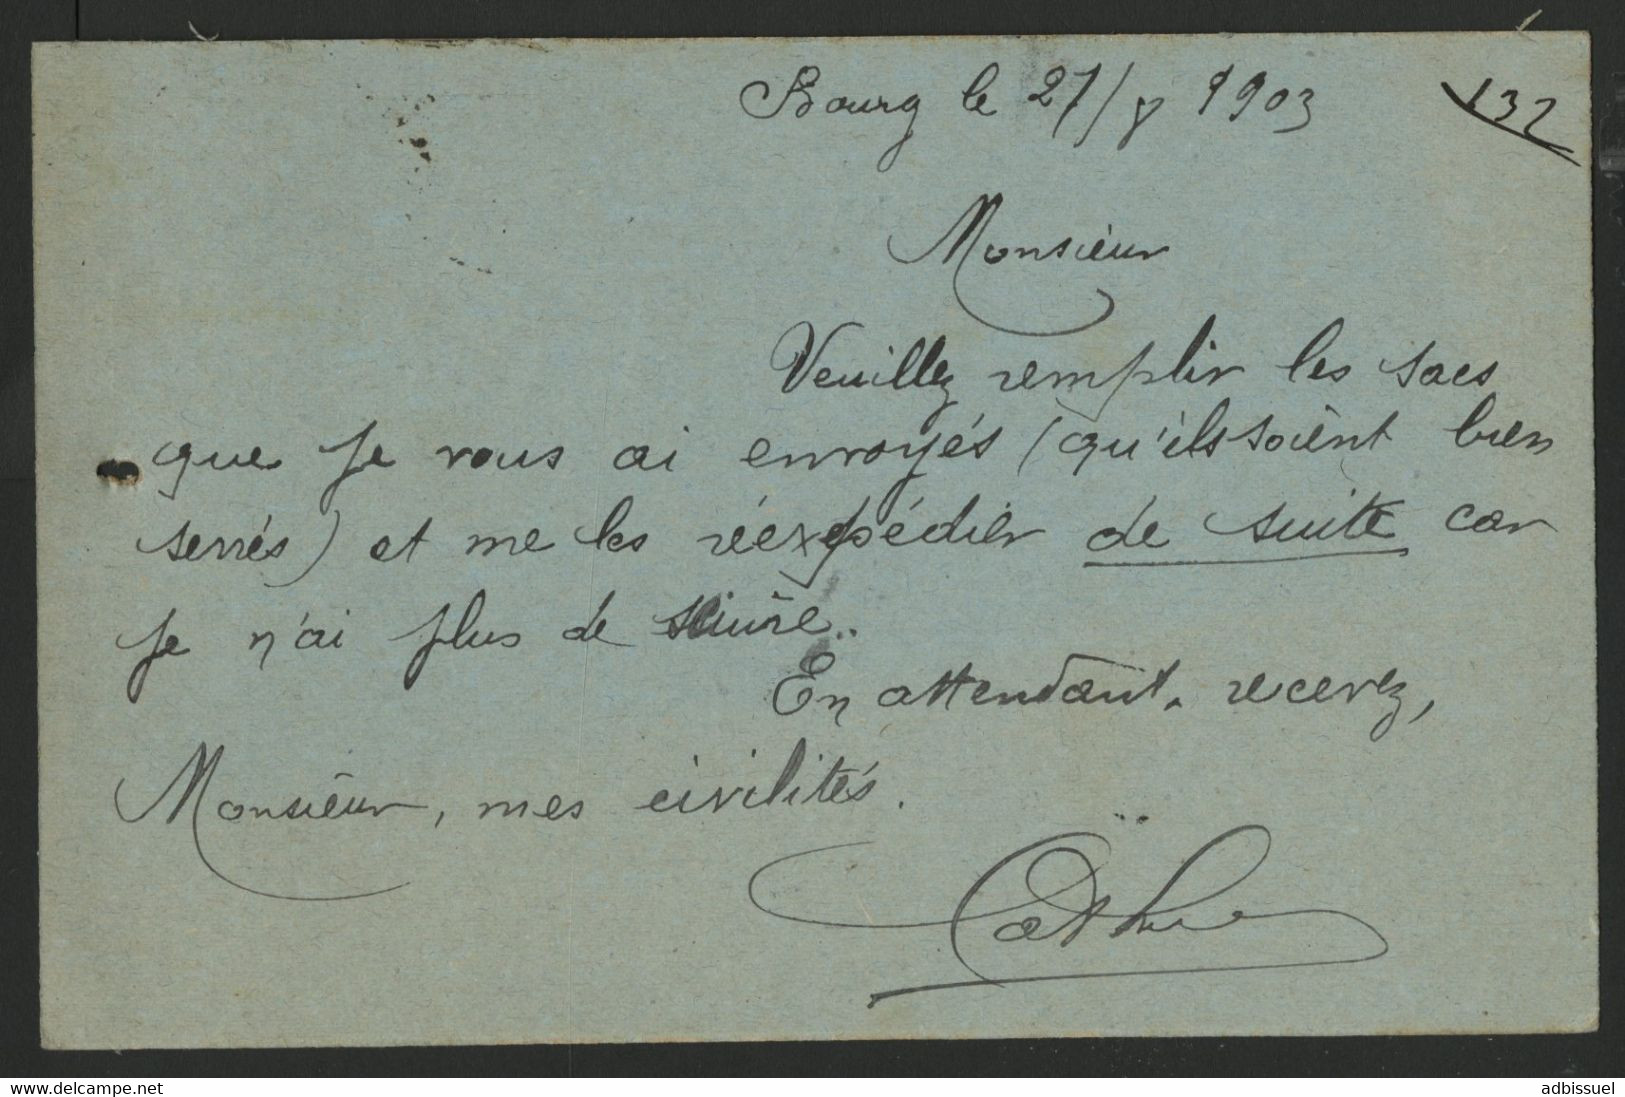 Bourg le 27/8 1903
132
Monsieur
Veuillez remplir les sacs
que je vous ai envoyés (qu'ils soient bien
serrés) et me les réexpédier de suite car
je n'ai plus de sciure.
En attendant, recevez,
Monsieur, mes civilités.
www.delcampe.net
adbissuel